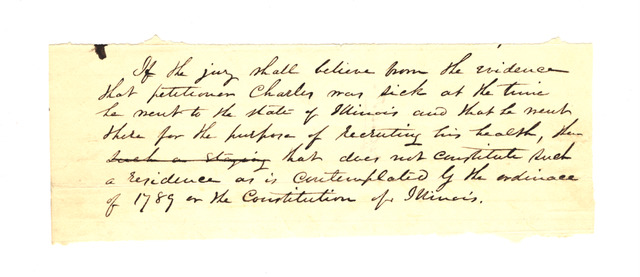 If the jury shall believe from the evidence
that petitioner Charles was sick at the time
he went to the state of Illinois and that he went
there for the purpose of recruiting his health, then
such a staying that does not constitute such
a residence as is contemplated by the ordinace
of 1789 or the Constitution of Illinois.